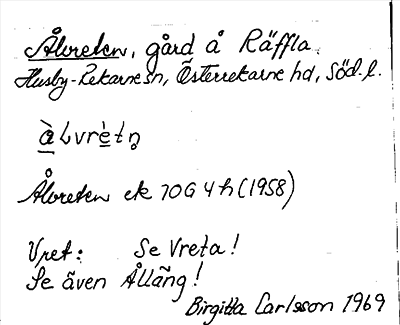 Ålvreten, gård å Räffla
Husby-Rekarne sn, Österrekarne hd, Söd. l.
Ålvreten ek 10G 4h (1958)
Vret: Se Vreta!
Se även Ållång!
Birgitta Carlsson 1969